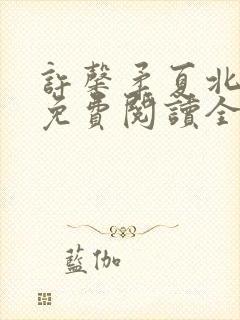 許馨矛夏北
免費閱讀全
藍伽